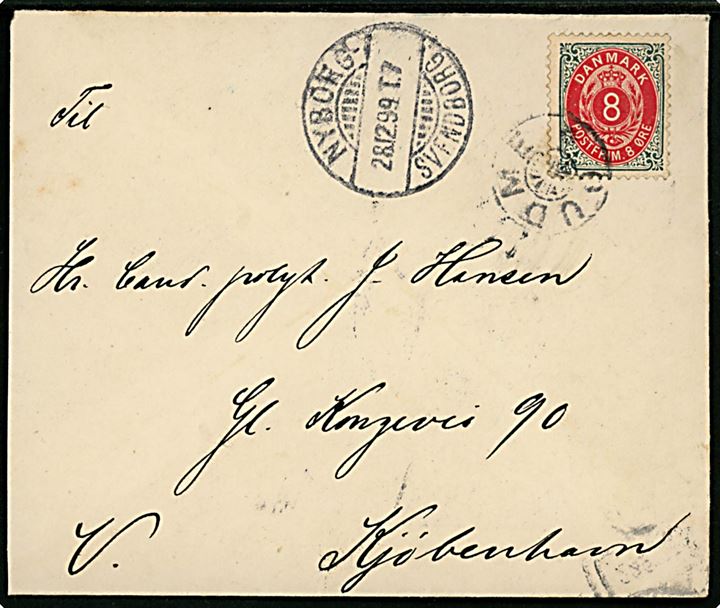 NYBORG.
28.12.99 T.7
SVENDBORG.
DANMARK
8
POSTFRIM. 8 ØRE
GUDM
Til
Hr. Cand. polyt. J. Hansen
Gl. Kongevei 90
V. Kjöbenhavn